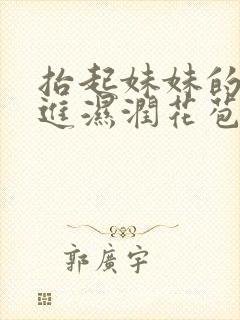 抬起妹妹的
進濕潤花苞
郭廣宇